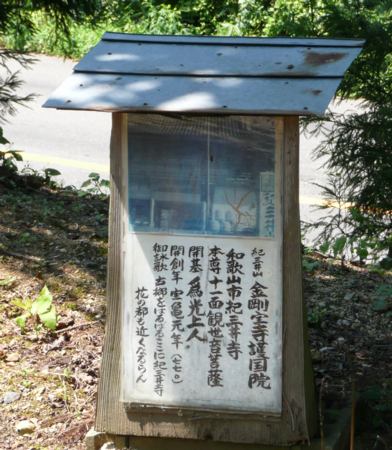 紀三井山 金剛宝寺護国院
和歌山市紀三井寺
本尊 十一面観世音菩薩
開基 為光上人
開創年 宝亀元年(七七〇)
御詠歌 古郷をはるばるここに紀三井寺
花の都も近くなるらん